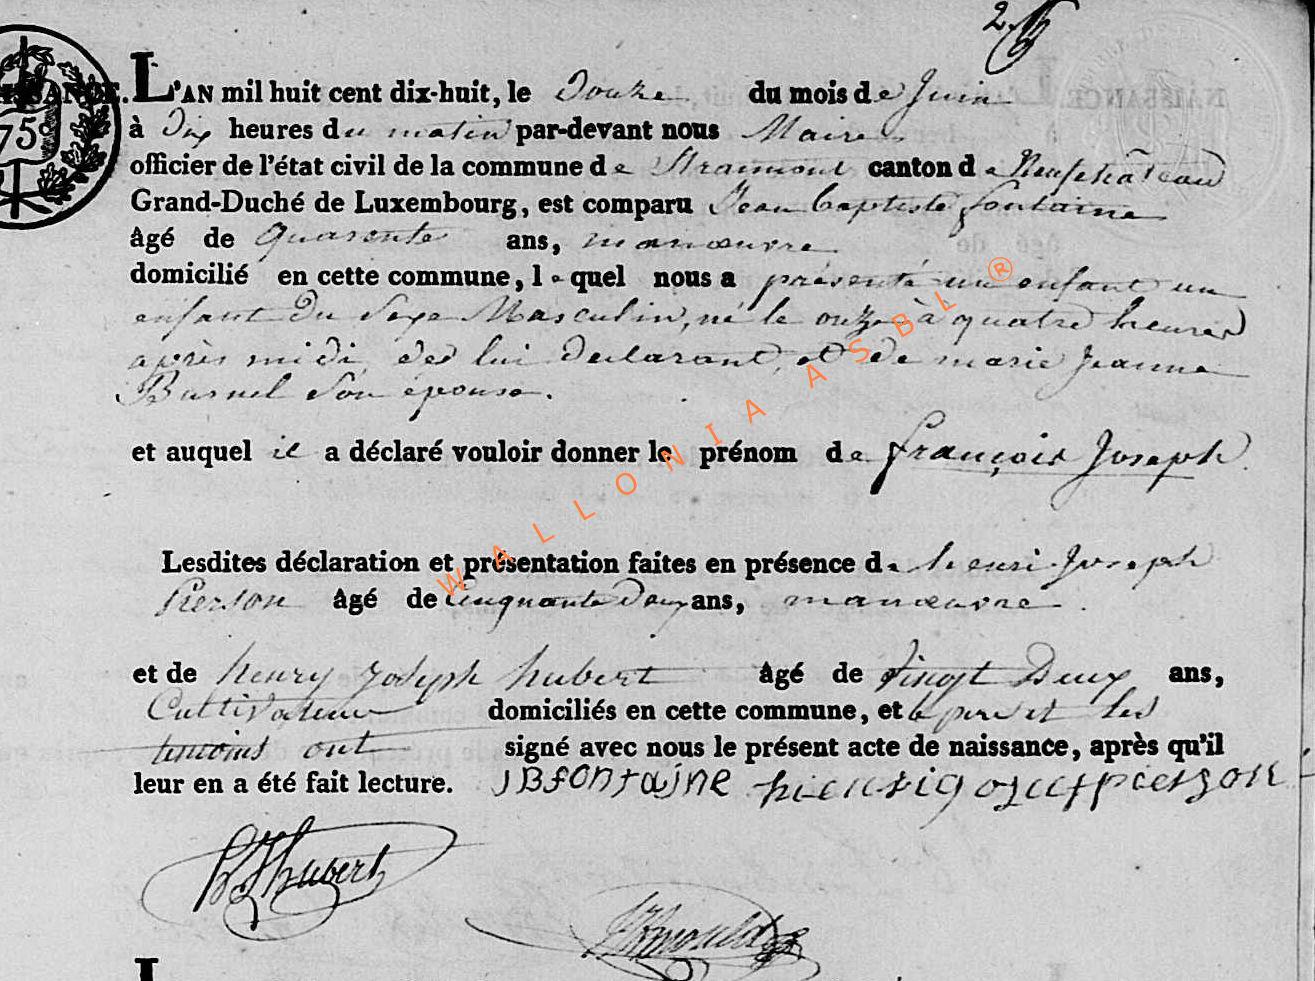 L'AN mil huit cent dix-huit, le Douze du mois de Juin
à Dix heures du matin par-devant nous Maire
officier de l'état civil de la commune de Straimont canton de Neufchâteau
Grand-Duché de Luxembourg, est comparu Jean baptiste fontaine
âgé de quarente ans, manœuvre
domicilié en cette commune, lequel nous a présenté un enfant un
enfant du Sexe Masculin, né le onze à quatre heures
après midi de lui declarant, et de marie Jeanne
Burnel son épouse.
et auquel il a déclaré vouloir donner le prénom de françois Joseph
Lesdites déclaration et présentation faites en présence de henri Joseph
Pierson âgé de Cinquante Deux ans, manœuvre.
et de henry Joseph hubert âgé de Vingt Deux ans,
Cultivateur domiciliés en cette commune, et le pere et les
temoins ont signé avec nous le présent acte de naissance, après qu'il
leur en a été fait lecture. JBfontaine hienrigozefpierzon
hJhubert
WALLONIA ASBL ®
NAISSANCE.
75c